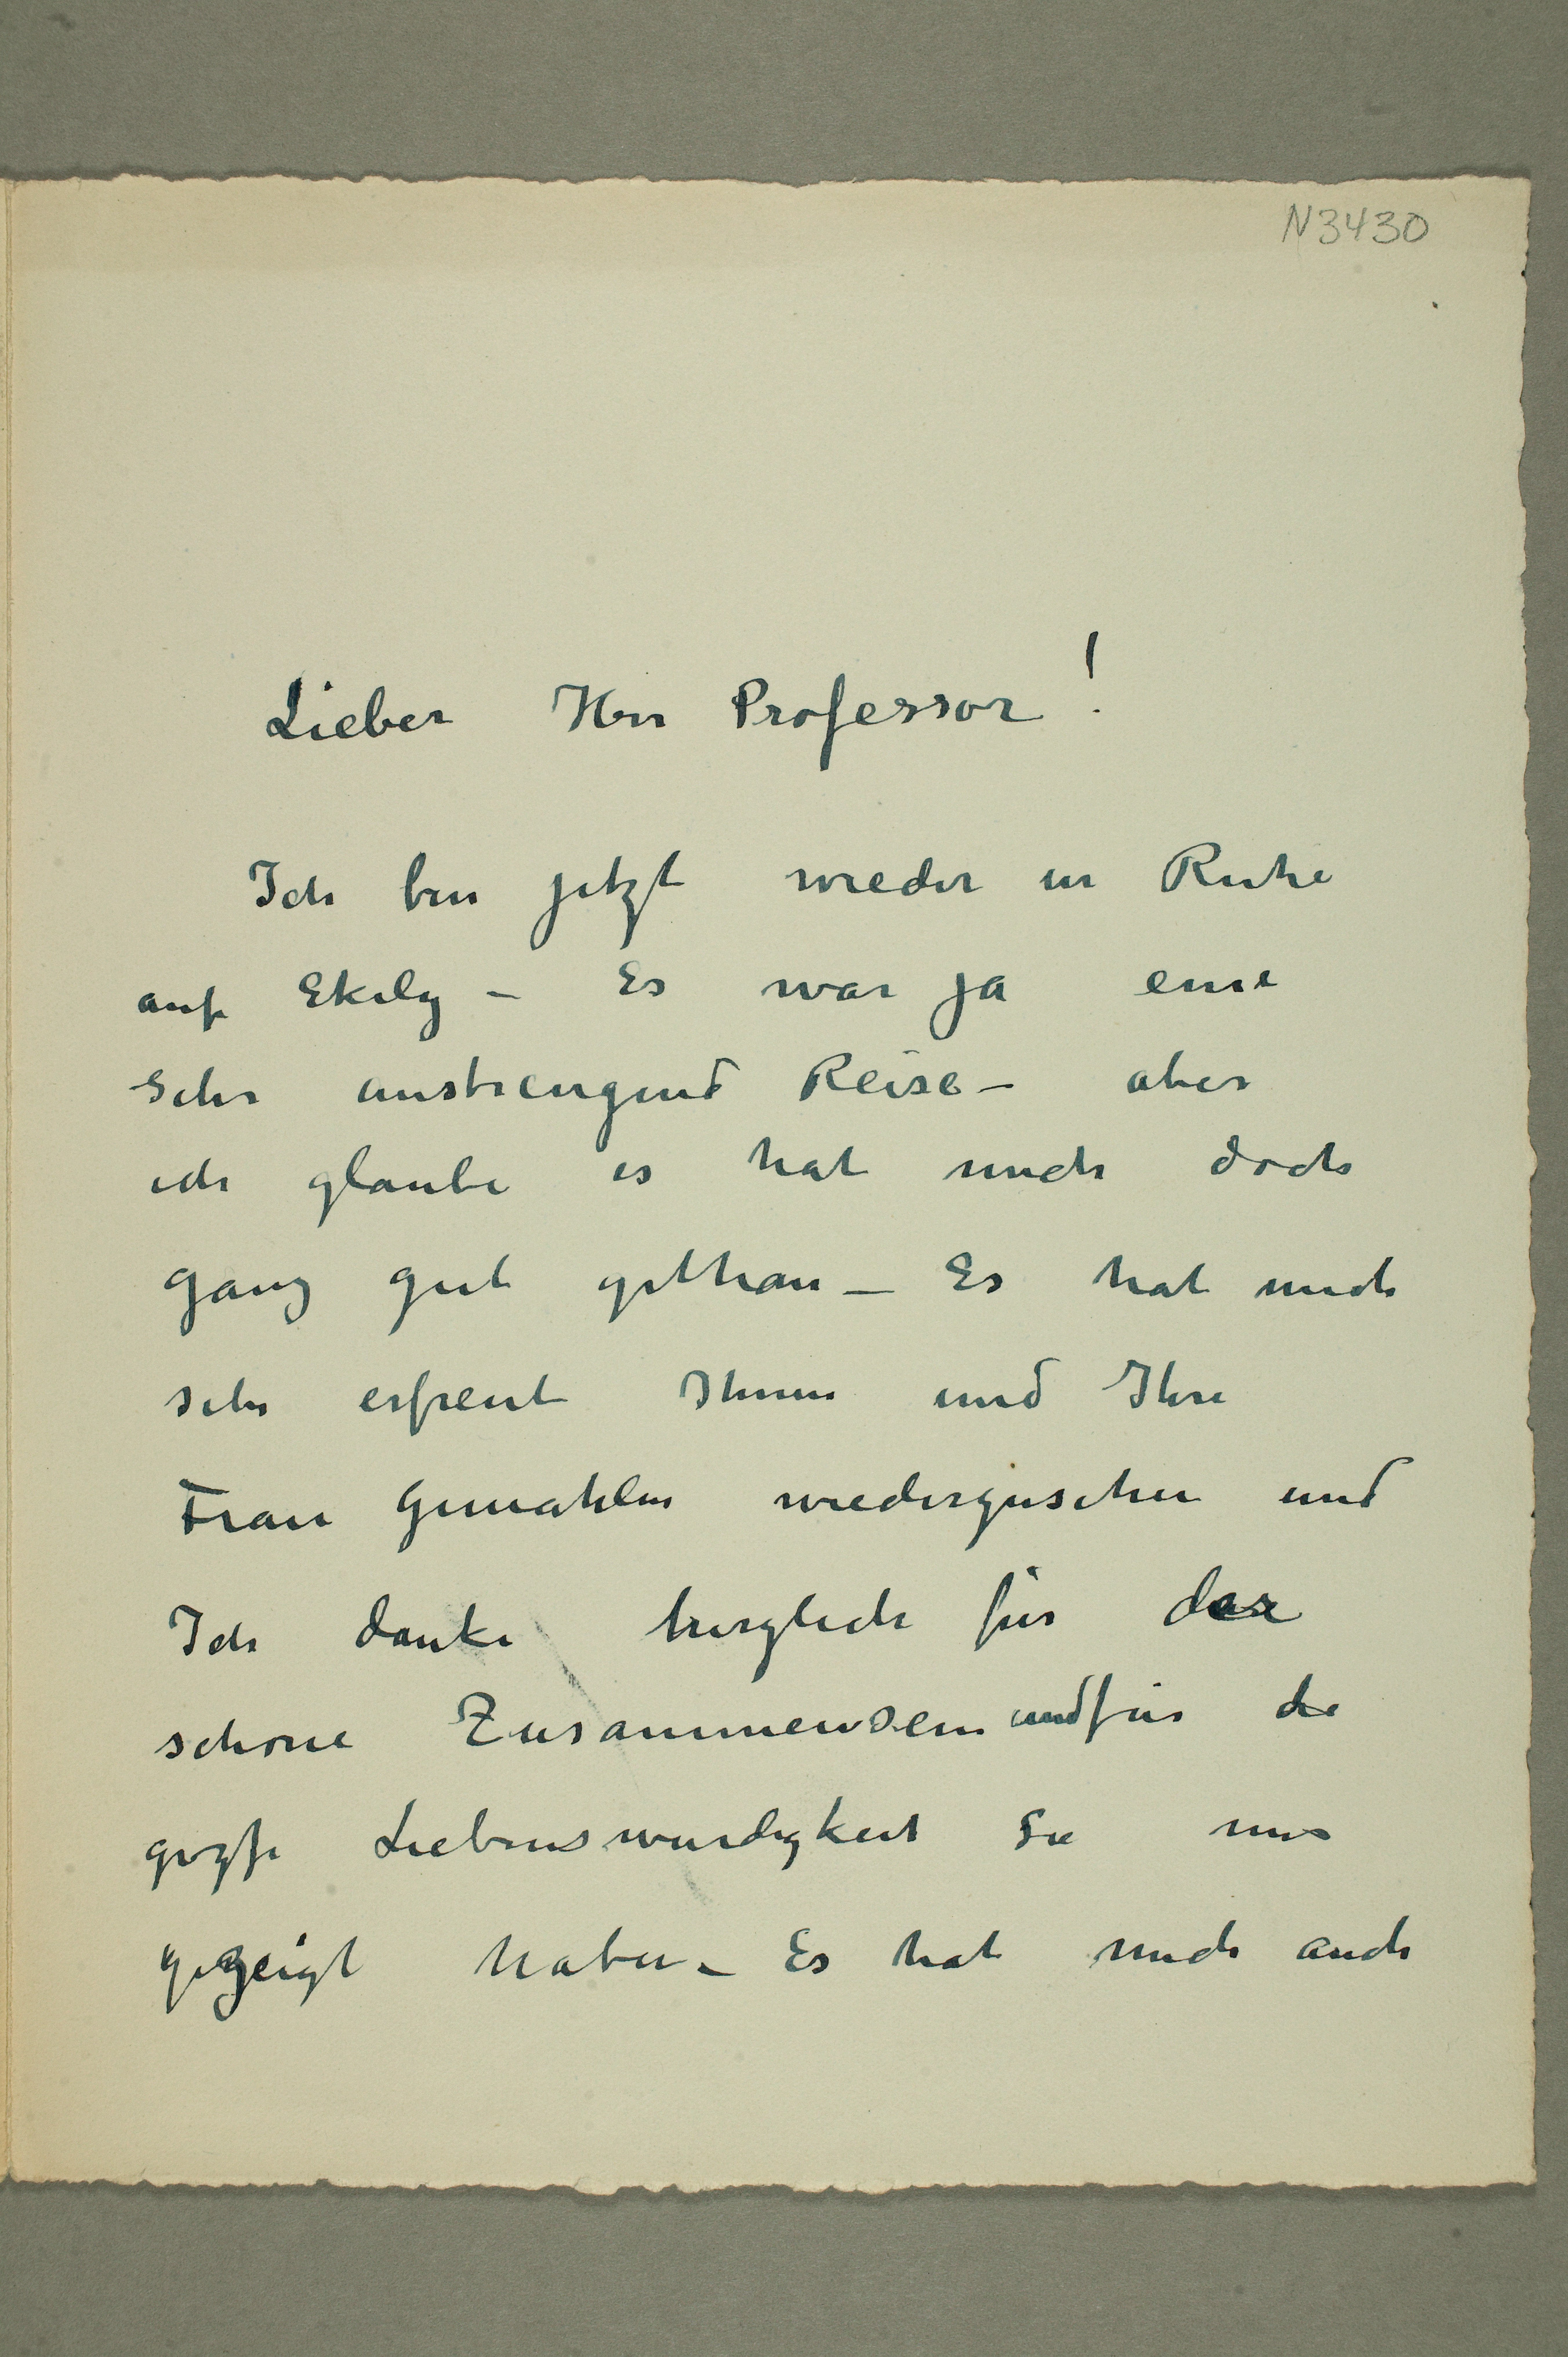 N3430
Lieber Herr Professor!
Ich bin jetzt wieder in Ruhe
auf Ekely – Es war ja eine
sehr anstrengend Reise – aber
ich glaube es hat mich doch
ganz gut gethan – Es hat mich
sehr erfreut Ihnen und Ihre
Frau Gemahlin wiederzusehen und
Ich danke herzlich für das
schöne Zusammensein und für die
grosse Liebenswürdigkeit Sie mir
gezeigt haben – Es hat mich auch